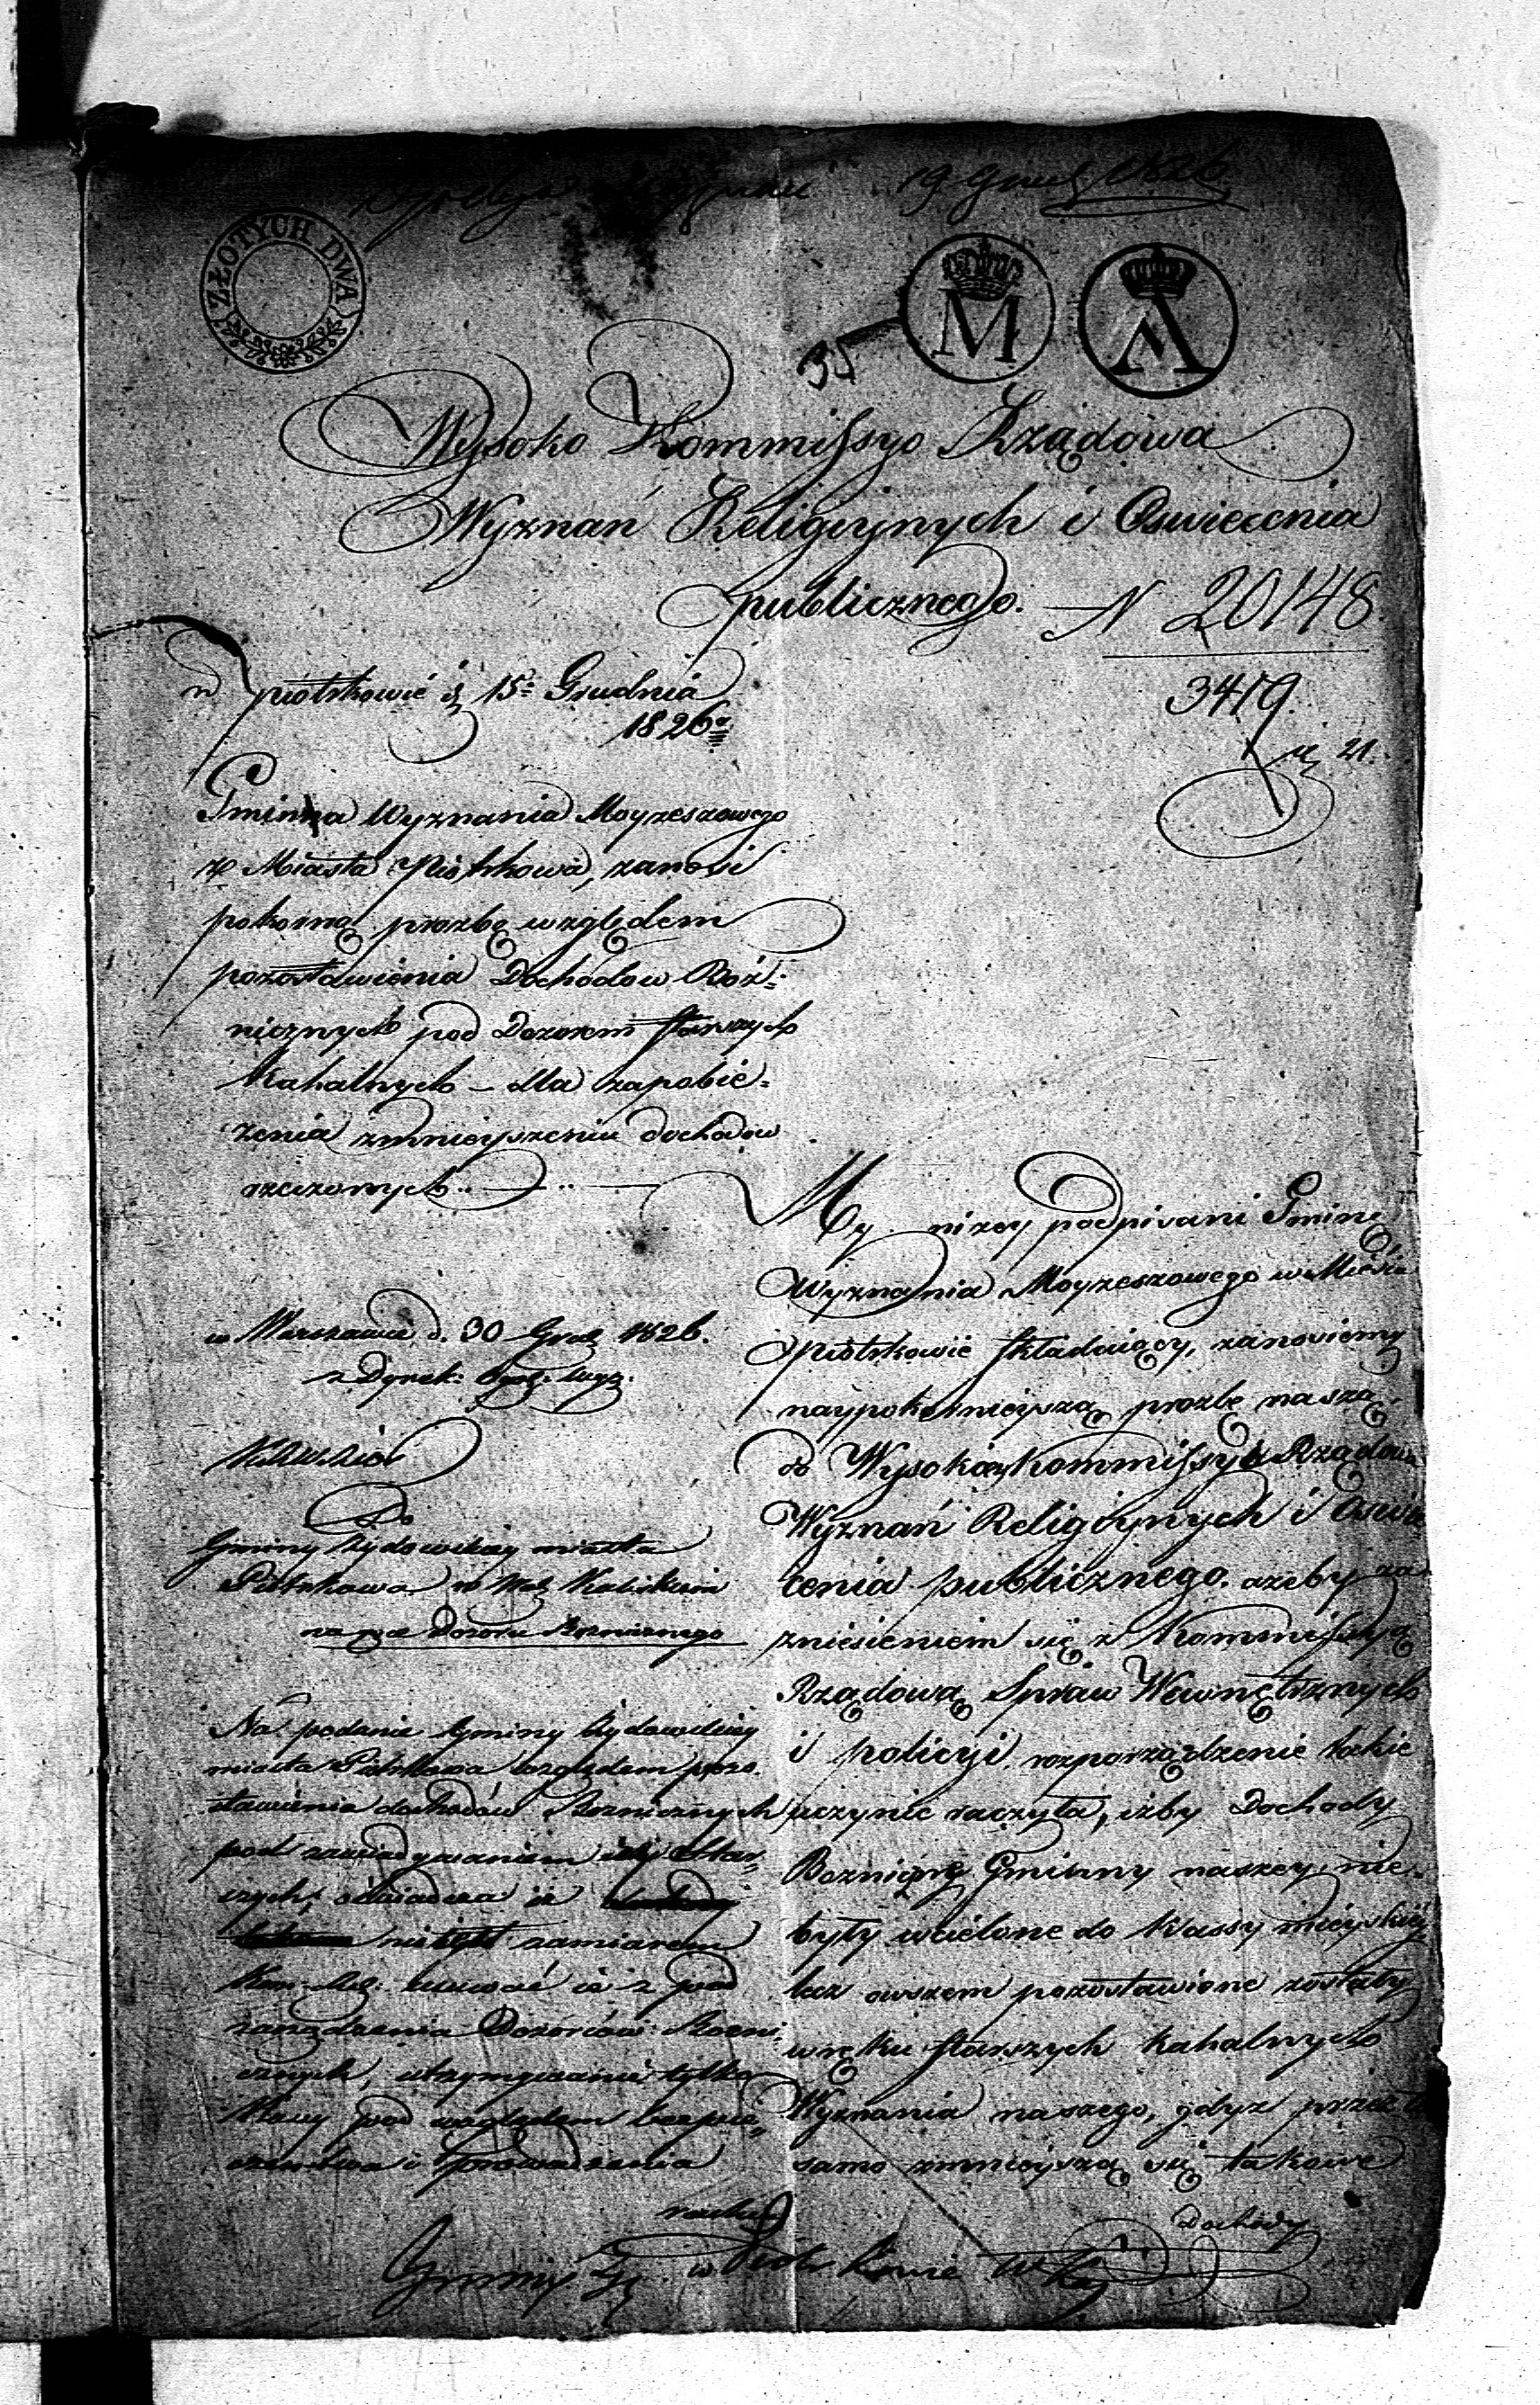 19 Grud 1826
ZŁOTYCH DWA
M
A
35
Wysoko Kommissyo Rządowa
Wyznań Religiynych i Oswiecenia
publicznego.
N 20148.
3419.
21.
w Piotrkowie d. 15. Grudnia
1826
Gminna Wyznania Moyzeszowego
z Miasta Piotrkowa, zanosi
pokorną prozbę względem
pozostawienia Dochodow Boż=
nicznych pod Dozorem starszych
Kahalnych - dla zapobie=
żenia zmnieyszeniu dochodow
rzeczonych
w Warszawie d. 30 Grud 1826.
z Dyrek:
Do
Gminy Żydowskiey miasta
Piotrkowa w Kaliskim
na ręce Dozoru Boznicznego
Na podanie Gminy Żydowskiey
miasta Piotrkowa względem pozo
stawienia dochodów Boznicznych
pod zawiadywaniem Star=
szych, oświadcza iż
nie iest zamiarem
Kom: usuwać ie z pod
zarządzenia Dozorców Bozni
cznych, utrzymywanie tylko
Kassy pod względem bezpie=
czeństwa i prowadzenia
My niżey podpisani Gminę
Wyznania Moyzeszowego w Mieście
Piotrkowie składaiący, zanosiemy
naypokornieyszą prozbę naszą
do Wysokiey Kommissyi Rządowey
Wyznań Religiynych i Oswie
cenia publicznego. azeby za
zniesieniem się z Kommissyą
Rządową Spraw Wewnętrznych
i policyi. rozporządzenie takie
uczynic raczyła, iżby Dochody
Boznicze Gminny naszey nie=
były wcielone do Kassy mieyskiey
lecz owszem pozostawione zostały
w ręku starszych Kahalnych
Wyznania naszego, gdyz przez to
samo zmnieyszą się takowe
Dochody
Gminy w Piotrkowie